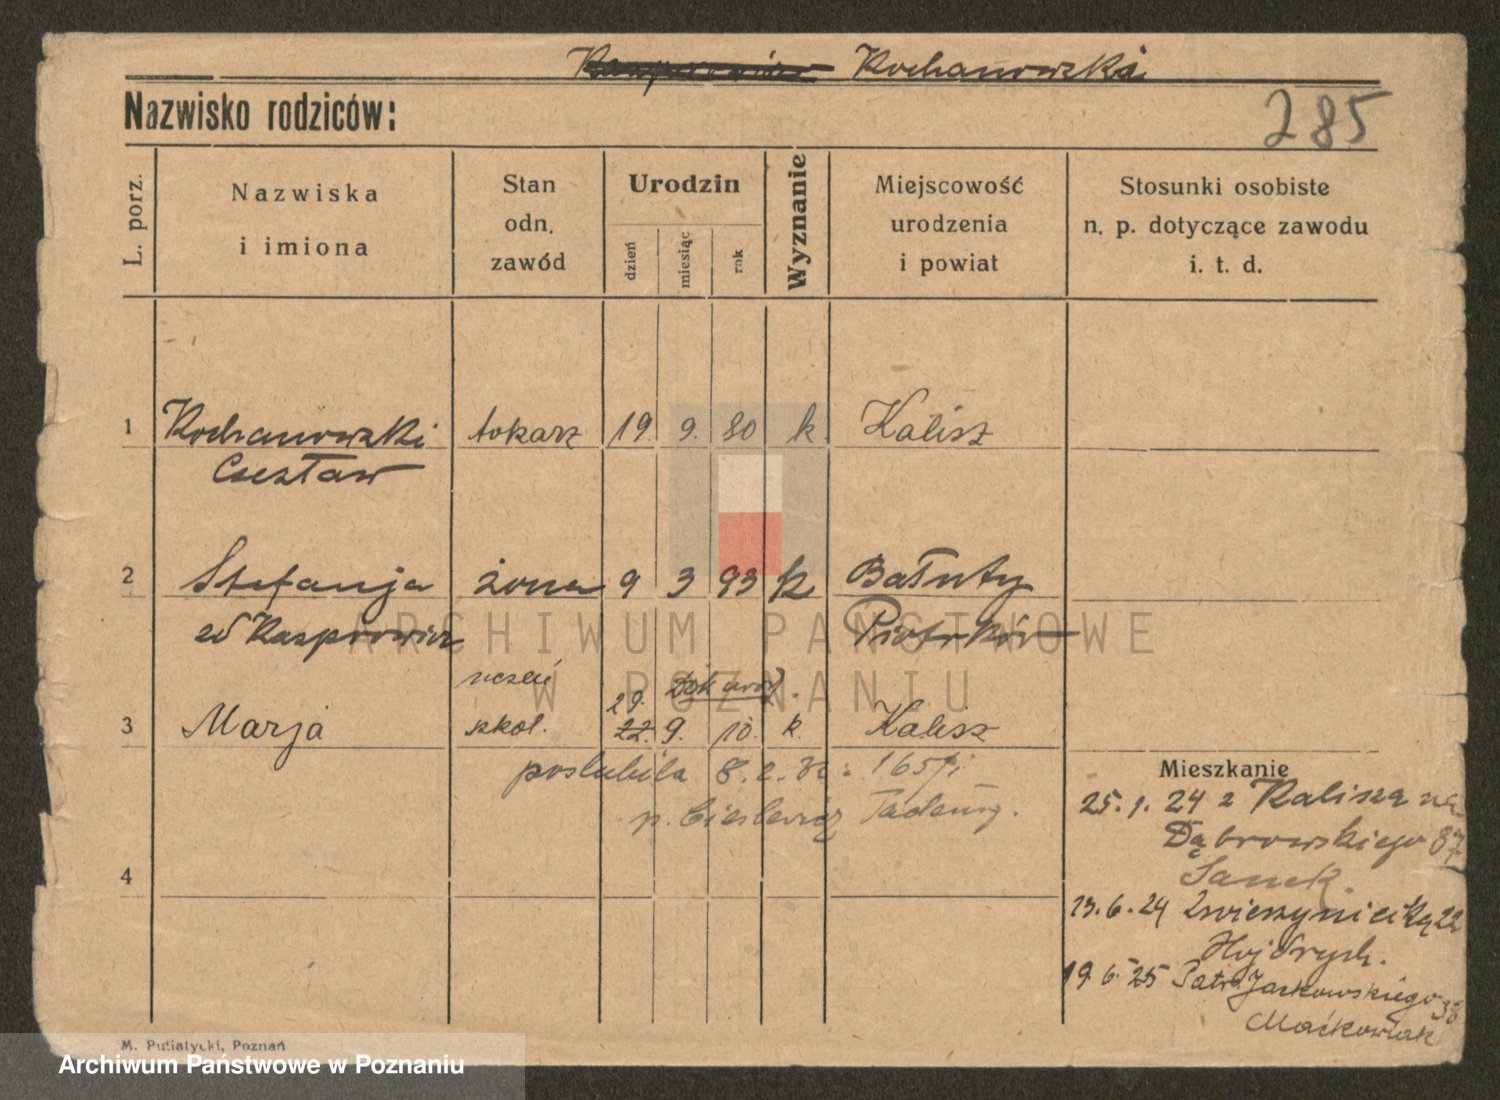 Kasprowicz Kochanowski
Nazwisko rodziców:
285
L. porz.
Nazwiska
i imiona
Stan
odn.
zawód
Urodzin
dzień
miesiąc
rok
Wyznanie
Miejscowość
urodzenia
i powiat
Stosunki osobiste
n. p. dotyczące zawodu
i. t. d.
1 Kochanowski tokarz 19. 9. 80 k. Kalisz
Czesław
2 Stefanja żona 9 3 93 k Bałuty
zd Kasprowicz Piotrków
uczeń
29. Dok urodz.
3 Marja szkol. 22. 9. 10. k. Kalisz
poslubiła 8. 2. 32
p. Cieslewicz Tadeusz.
4
Mieszkanie
25. 1. 24 z Kalisza na
Dąbrowskiego 87
Sanek.
13. 6. 24 Zwierzyniecką 22
Hojdrych.
19. 6. 25 Patr. Jackowskiego 38
Maćkowiak
M. Putiatycki, Poznań
ARCHIWUM PAŃSTWOWE
W POZNANIU
Archiwum Państwowe w Poznaniu